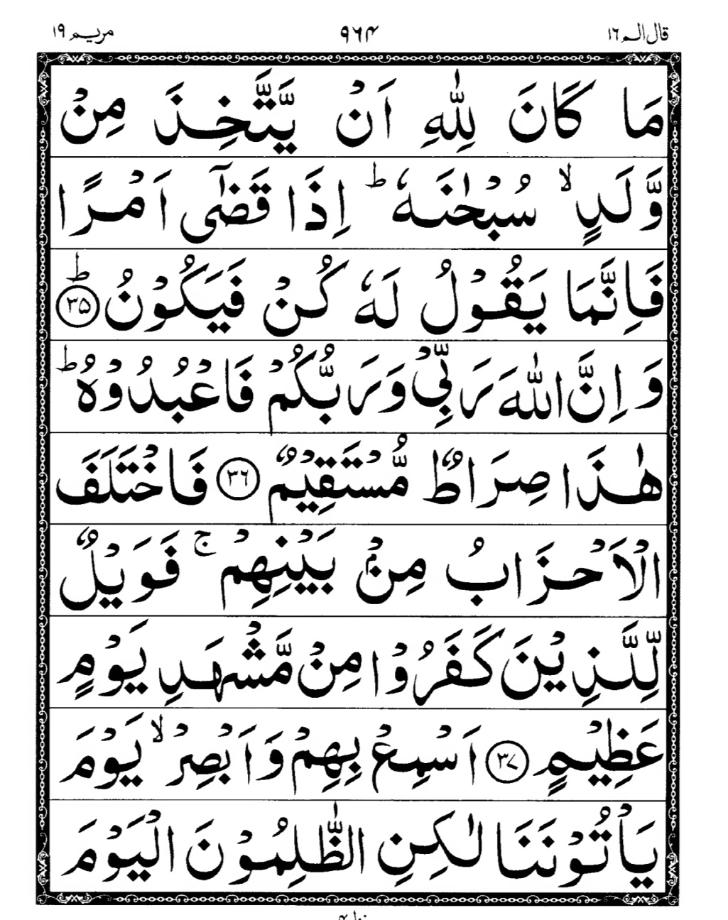 قال الم ١٦ ٩٦٤ مريم ١٩
مَا كَانَ لِلّٰهِ اَنْ يَّتَّخِذَ مِنْ
وَّلَدٍ ۙ سُبْحٰنَهٗ ؕ اِذَا قَضٰٓى اَمْرًا
فَاِنَّمَا يَقُوْلُ لَهٗ كُنْ فَيَكُوْنُ ؕ ۳۵
وَ اِنَّ اللّٰهَ رَبِّيْ وَرَبُّكُمْ فَاعْبُدُوْهُ ؕ
هٰذَا صِرَاطٌ مُّسْتَقِيْمٌ ۳۶ فَاخْتَلَفَ
الْاَحْزَابُ مِنْۢ بَيْنِهِمْ ۚ فَوَيْلٌ
لِّلَّذِيْنَ كَفَرُوْا مِنْ مَّشْهَدِ يَوْمٍ
عَظِيْمٍ ۳۷ اَسْمِعْ بِهِمْ وَاَبْصِرْ ۙ يَوْمَ
يَاْتُوْنَنَا لٰكِنِ الظّٰلِمُوْنَ الْيَوْمَ